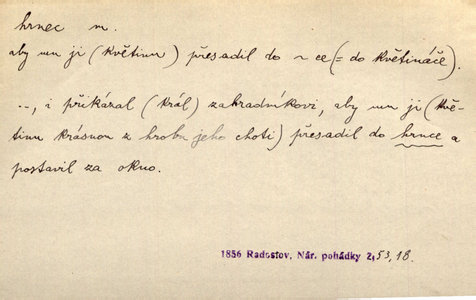 hrnec m.
aby mu ji (květinu) přesadil do ~ ce (= do květináče).
.., i přikázal (král) zahradníkovi, aby mu ji (kvě-
tinu krásnou z hrobu jeho choti) přesadil do hrnce a
postavil za okno.
1856 Radostov, Nár. pohádky 2, 53, 18.